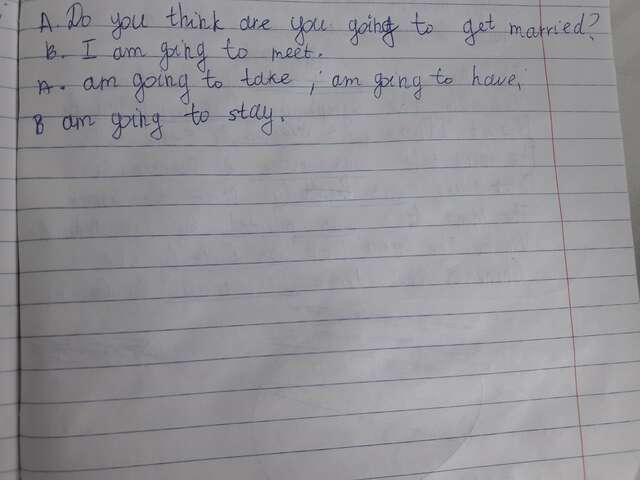 A. Do you think are you going to get married?
B. I am going to meet.
A. am going to take, am going to have,
B am going to stay.